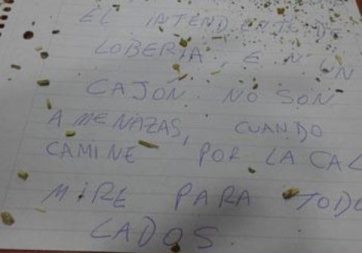 EL INTENDENTE DE
LOBERIA, EN UN
CAJÓN NO SON
AMENAZAS, CUANDO
CAMINE POR LA CAL
MIRE PARA TODO
LADOS